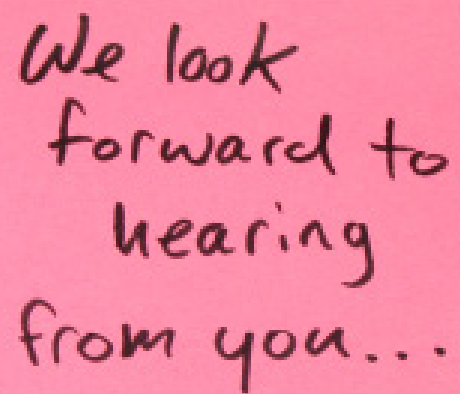 We look
forward to
hearing
from you...